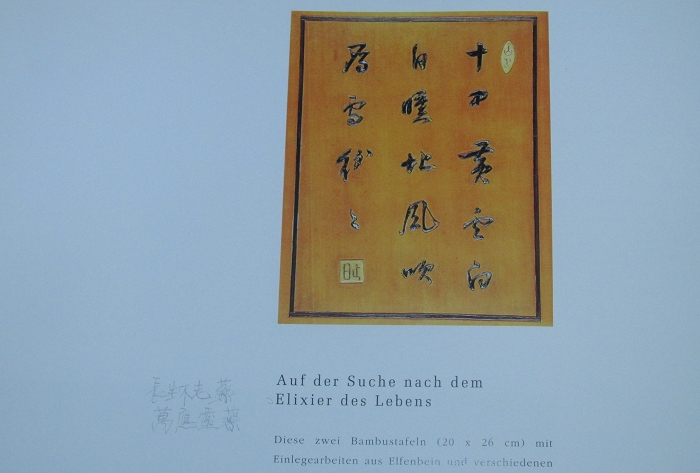 十里黃雲白
日曛北風吹
雁雪紛々
Auf der Suche nach dem
Elixier des Lebens
長生不老藥
萬應靈藥
Diese zwei Bambustafeln (20 x 26 cm) mit
Einlegearbeiten aus Elfenbein und verschiedenen